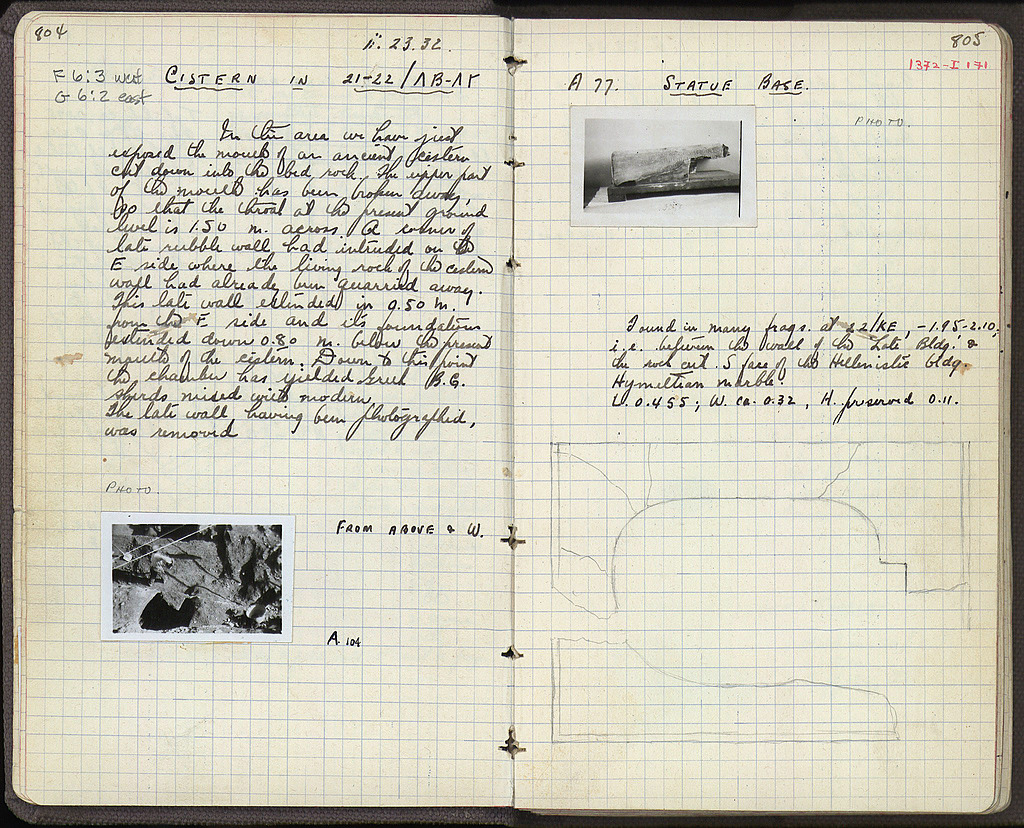 804
ii. 23.32.
F 6:3 west
G 6:2 east
CISTERN IN 21-22/ΛB-ΛΓ
In this area we have just
exposed the mouth of an ancient cistern
cut down into the bed rock. The upper part
of the mouth has been broken away,
so that the throat at the present ground
level is 1.50 m. across. A corner of
late rubble wall had intruded on the
E side where the living rock of the cistern
wall had already been quarried away.
This late wall extended in 0.50 m.
from the E side and its foundations
extended down 0.80 m. below the present
mouth of the cistern. Down to this point
the chamber has yielded Greek B.G.
sherds mixed with modern.
The late wall, having been photographed,
was removed
PHOTO.
FROM ABOVE & W.
A 104
805
1372-I 171
A 77. STATUE BASE.
PHOTO.
Found in many frags. at 22/KE, -1.95-2.10,
i.e. between the wall of the 'Late Bldg.' &
the rock cut S face of the Hellenistic bldg.
Hymettian marble.
L. 0.455; W. ca. 0.32, H. preserved 0.11.